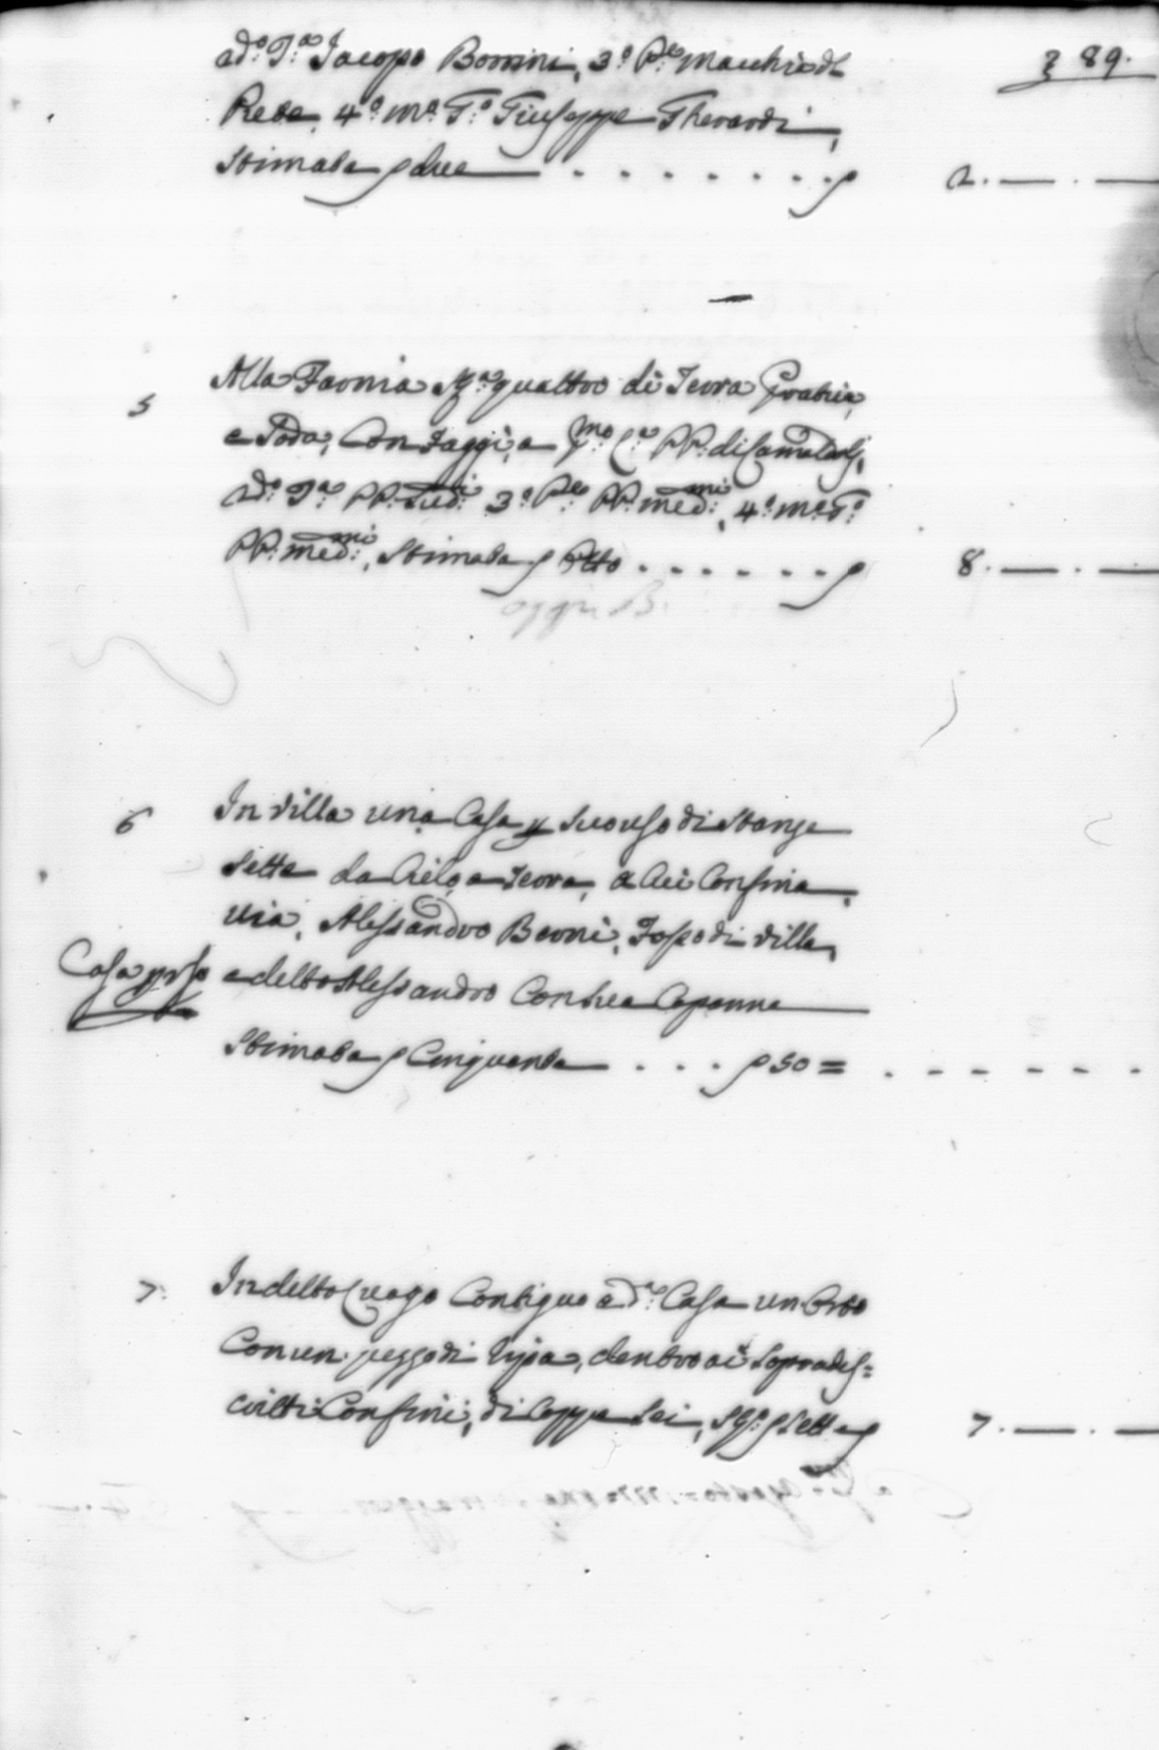 ʒ 89.
2do. Ta. Jacopo Bonini, 3o. Pe. Macchie di
Rete, 4o. Ma. Ta. Giuseppe Gherardi,
Stimata ƿ due . . . . . . . . ƿ 2. — . —
5 Alla Farnia St.a quattro di Terra Prativa,
e Soda, Con Faggi, a Pmo. La. PP. di Camaldoli,
2do. Ta. PP. Sud.i 3o. Pe. PP. med.mi, 4o. Ma. Ta.
PP. med.mi, Stimata ƿ Otto . . . . . . ƿ 8. — . —
oggi B.
6 In Villa una Casa p Suo uso di Stanze
Sette da Cielo a Terra, a Cui Confina,
Via, Alessandro Berni, Fosso di Villa,
Casa p uso e detto Alessandro Con sue Capanne
Stimata ƿ Cinquanta . . . ƿ 50 = . - - - - -
7. In detto Luogo Contiguo a da. Casa un Orto
Con un pezzo di Ripa, dentro ai Soprades=
critti Confini, di Coppe Sei, Sta. ƿ Sette ƿ 7. — . —